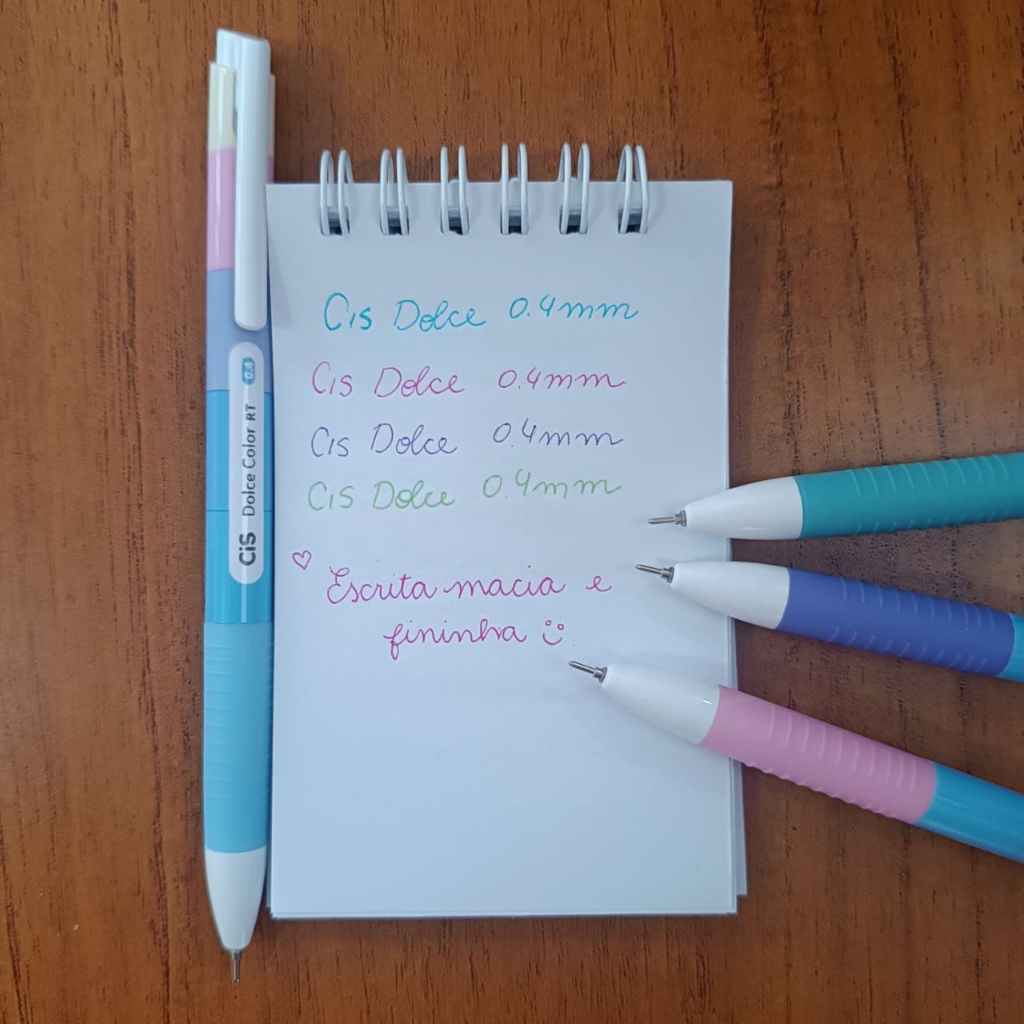 Cis Dolce 0.4mm
Cis Dolce 0.4mm
Cis Dolce 0.4mm
Cis Dolce 0.4mm
Escrita macia e
fininha
CiS Dolce Color RT 0.4